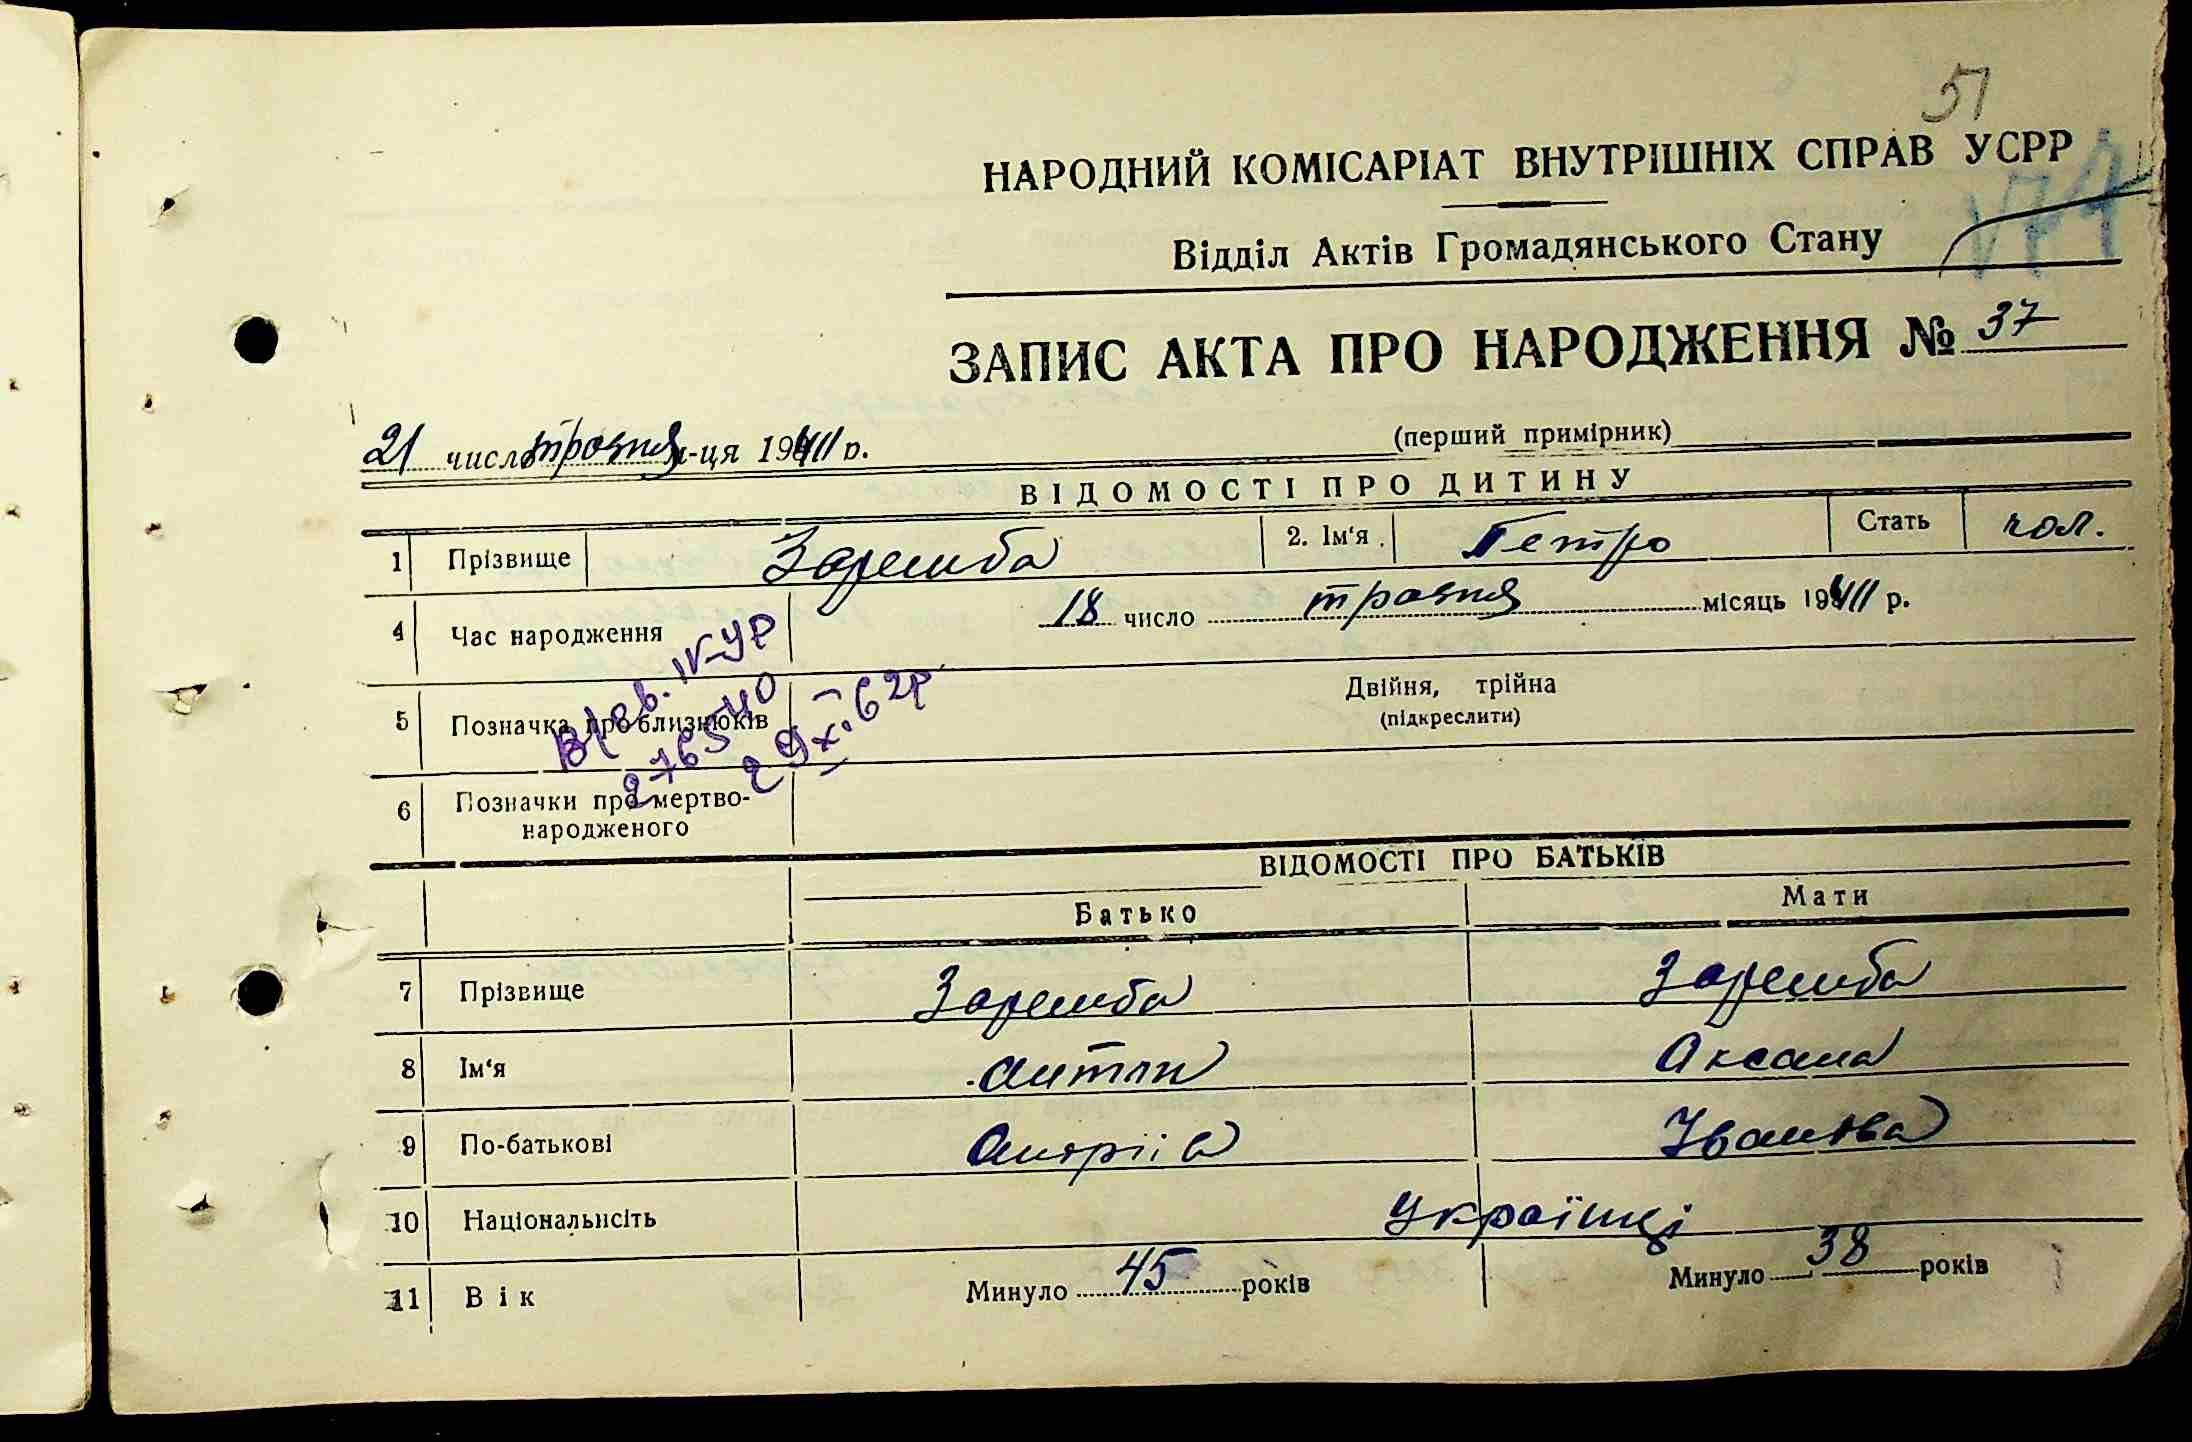 51
НАРОДНИЙ КОМІСАРІАТ ВНУТРІШНІХ СПРАВ УСРР
Відділ Актів Громадянського Стану
ЗАПИС АКТА ПРО НАРОДЖЕННЯ № 37
(перший примірник)
21 число травня м-ця 1941 р.
ВІДОМОСТІ ПРО ДИТИНУ
1 Прізвище Заремба 2. Ім'я Петро Стать чол.
4 Час народження 18 число травня місяць 1941 р.
5 Позначка про близнюків Двійня, трійна
(підкреслити)
IV-УР
276540
29 X. 62р
6 Позначки про мертво-
народженого
ВІДОМОСТІ ПРО БАТЬКІВ
Батько Мати
7 Прізвище Заремба Заремба
8 Ім'я Антін Оксана
9 По-батькові Андріїв Іванова
10 Національність Українці
11 Вік Минуло 45 років Минуло 38 років